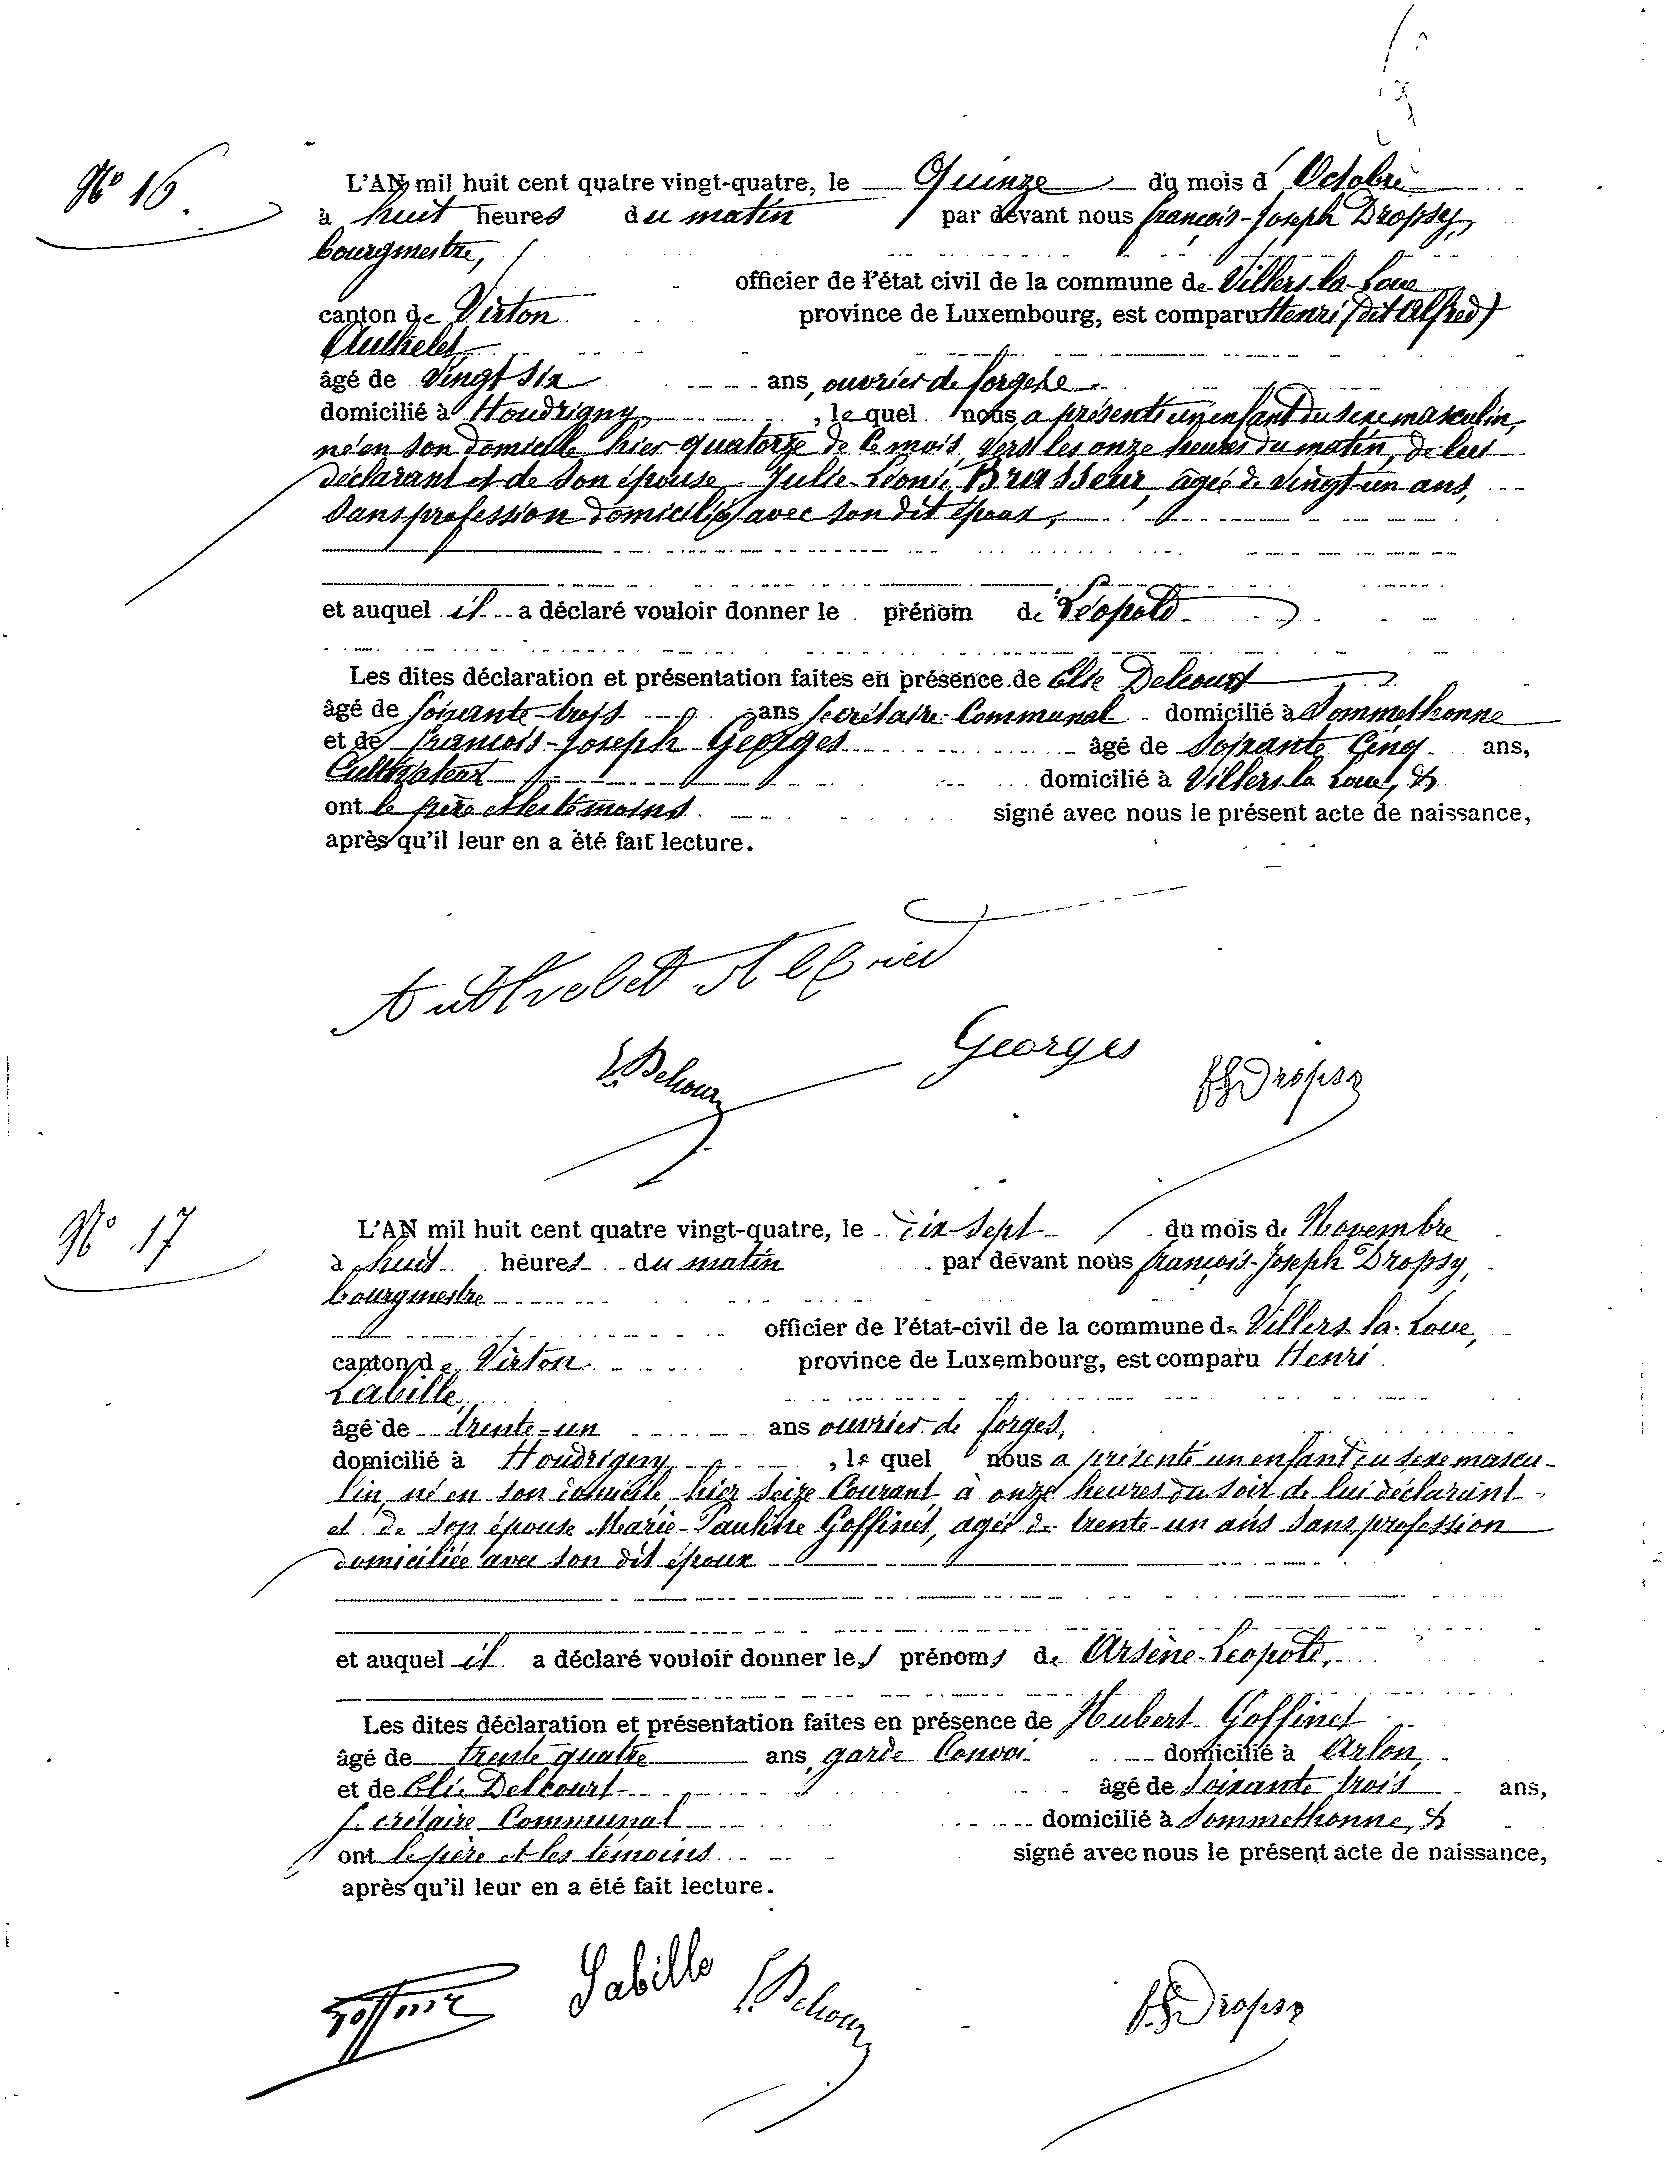 N° 16
L'AN mil huit cent quatre vingt-quatre, le Quinze du mois d'Octobre
à huit heures du matin par devant nous françois-Joseph Dropsy,
bourgmestre,
officier de l'état civil de la commune de Villers-la-Loue
canton de Virton province de Luxembourg, est comparu Henri (dit Alfred)
Authelet
âgé de vingt six ans, ouvrier de forges
domicilié à Houdrigny, le quel nous a présenté un enfant du sexe masculin,
né en son domicile hier quatorze de ce mois, vers les onze heures du matin, de lui
déclarant et de son épouse Julie-Léonie Brasseur, agée de vingt-un ans,
sans profession domiciliée avec son dit époux,
et auquel il a déclaré vouloir donner le prénom de Léopold
Les dites déclaration et présentation faites en présence de Elie Delcourt
âgé de soixante-trois ans secrétaire Communal domicilié à Sommethonne
et de françois-Joseph Georges âgé de soixante Cinq ans,
Cultivateur domicilié à Villers-la Loue, &
ont le père et les témoins signé avec nous le présent acte de naissance,
après qu'il leur en a été fait lecture.
Authelet Alfred
E. Delcour
Georges
fJ Dropsy
N° 17
L'AN mil huit cent quatre vingt-quatre, le Dix-sept du mois de Novembre
à huit heures du matin par devant nous françois-Joseph Dropsy,
bourgmestre
officier de l'état-civil de la commune de Villers-la-Loue,
canton de Virton province de Luxembourg, est comparu Henri
Labille,
âgé de trente-un ans ouvrier de forges,
domicilié à Houdrigny, le quel nous a présenté un enfant du sexe mascu-
lin, né en son domicile hier seize Courant à onze heures du soir de lui déclarant
et de son épouse Marie-Pauline Goffinet, agée de trente-un ans sans profession
domiciliée avec son dit époux
et auquel il a déclaré vouloir donner les prénoms de Arsène-Léopold,
Les dites déclaration et présentation faites en présence de Hubert Goffinet
âgé de trente quatre ans, garde Convoi domicilié à Arlon,
et de Elie Delcourt âgé de soixante trois ans,
secrétaire Communal domicilié à Sommethonne, &
ont le père et les témoins signé avec nous le présent acte de naissance,
après qu'il leur en a été fait lecture.
Goffinet
Labille
E. Delcour
fJ Dropsy